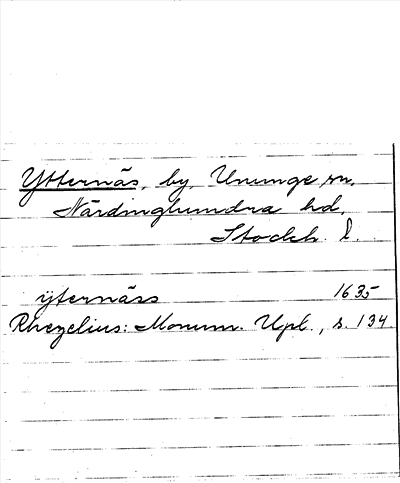 Ytternäs, by, Ununge sn.
Närdinghundra hd.
Stockh. l.
ijternäss 1635
Rhezelius: Monum. Upl., s. 134.